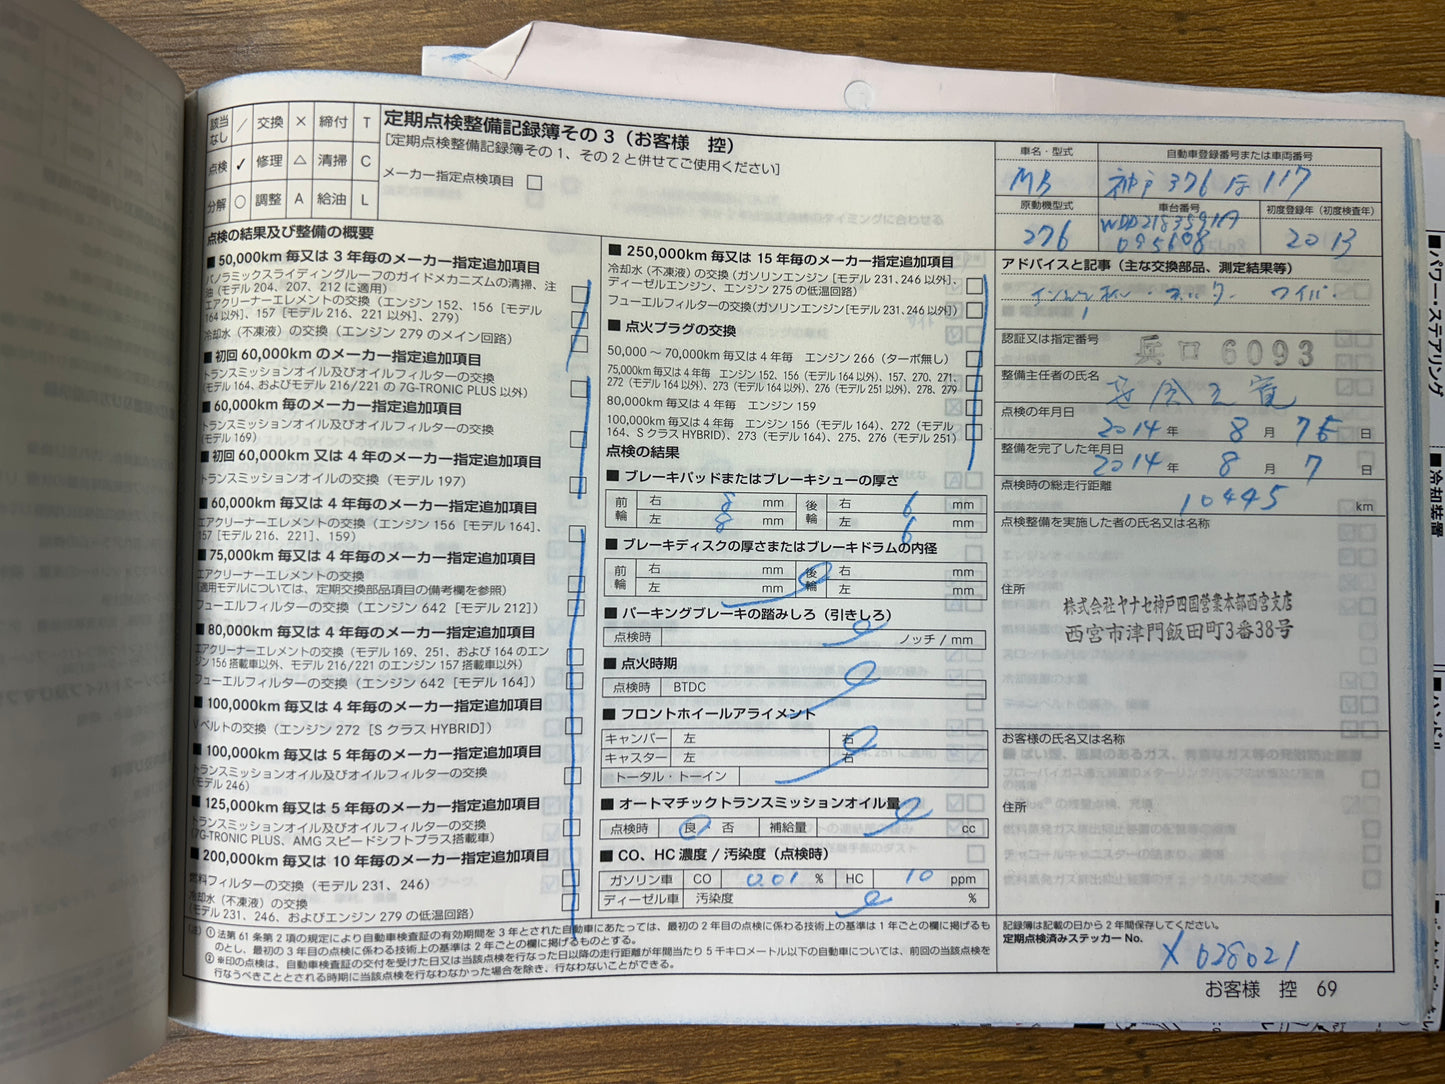 該当なし / 交換 × 締付 T
点検 ✓ 修理 △ 清掃 C
分解 ○ 調整 A 給油 L
定期点検整備記録簿その 3（お客様　控）
［定期点検整備記録簿その 1、その 2 と併せてご使用ください］
メーカー指定点検項目 □
点検の結果及び整備の概要
■ 50,000km 毎又は 3 年毎のメーカー指定追加項目
パノラミックスライディングルーフのガイドメカニズムの清掃、注
油（モデル 204、207、212 に適用）
エアクリーナーエレメントの交換（エンジン 152、156［モデル
164 以外］、157［モデル 216、221 以外］、279）
冷却水（不凍液）の交換（エンジン 279 のメイン回路）
■ 初回 60,000km のメーカー指定追加項目
トランスミッションオイル及びオイルフィルターの交換
（モデル 164、およびモデル 216/221 の 7G-TRONIC PLUS 以外）
■ 60,000km 毎のメーカー指定追加項目
トランスミッションオイル及びオイルフィルターの交換
（モデル 169）
■ 初回 60,000km 又は 4 年毎のメーカー指定追加項目
トランスミッションオイルの交換（モデル 197）
■ 60,000km 毎又は 4 年毎のメーカー指定追加項目
エアクリーナーエレメントの交換（エンジン 156［モデル 164］、
157［モデル 216、221］、159）
■ 75,000km 毎又は 4 年毎のメーカー指定追加項目
エアクリーナーエレメントの交換
（適用モデルについては、定期交換部品項目の備考欄を参照）
フューエルフィルターの交換（エンジン 642［モデル 212］）
■ 80,000km 毎又は 4 年毎のメーカー指定追加項目
エアクリーナーエレメントの交換（モデル 169、251、および 164 のエン
ジン 156 搭載車以外、モデル 216/221 のエンジン 157 搭載車以外）
フューエルフィルターの交換（エンジン 642［モデル 164］）
■ 100,000km 毎又は 4 年毎のメーカー指定追加項目
V ベルトの交換（エンジン 272［S クラス HYBRID］）
■ 100,000km 毎又は 5 年毎のメーカー指定追加項目
トランスミッションオイル及びオイルフィルターの交換
（モデル 246）
■ 125,000km 毎又は 5 年毎のメーカー指定追加項目
トランスミッションオイル及びオイルフィルターの交換
（7G-TRONIC PLUS、AMG スピードシフトプラス搭載車）
■ 200,000km 毎又は 10 年毎のメーカー指定追加項目
燃料フィルターの交換（モデル 231、246）
冷却水（不凍液）の交換
（モデル 231、246、およびエンジン 279 の低温回路）
■ 250,000km 毎又は 15 年毎のメーカー指定追加項目
冷却水（不凍液）の交換（ガソリンエンジン［モデル 231、246 以外］、
ディーゼルエンジン、エンジン 275 の低温回路）
フューエルフィルターの交換（ガソリンエンジン［モデル 231、246 以外］）
■ 点火プラグの交換
50,000 〜 70,000km 毎又は 4 年毎　エンジン 266（ターボ無し）
75,000km 毎又は 4 年毎　エンジン 152、156（モデル 164 以外）、157、270、271、
272（モデル 164 以外）、273（モデル 164 以外）、276（モデル 251 以外）、278、279
80,000km 毎又は 4 年毎　エンジン 159
100,000km 毎又は 4 年毎　エンジン 156（モデル 164）、272（モデル
164、S クラス HYBRID）、273（モデル 164）、275、276（モデル 251）
点検の結果
■ ブレーキパッドまたはブレーキシューの厚さ
前輪 右 8 mm 後輪 右 6 mm
左 8 mm 左 6 mm
■ ブレーキディスクの厚さまたはブレーキドラムの内径
前輪 右 mm 後輪 右 mm
左 mm 左 mm
■ パーキングブレーキの踏みしろ（引きしろ）
点検時 ノッチ / mm
■ 点火時期
点検時 BTDC
■ フロントホイールアライメント
キャンバー 左 右
キャスター 左 右
トータル・トーイン
■ オートマチックトランスミッションオイル量
点検時 良 否 補給量 cc
■ CO、HC 濃度 / 汚染度（点検時）
ガソリン車 CO 0.01 % HC 10 ppm
ディーゼル車 汚染度 %
車名・型式 自動車登録番号または車両番号
MB 神戸 376 117
原動機型式 車台番号 初度登録年（初度検査年）
276 095608 2013
アドバイスと記事（主な交換部品、測定結果等）
ワイパー
認証又は指定番号 兵 口 6093
整備主任者の氏名
点検の年月日
2014 年 8 月 日
整備を完了した年月日
2014 年 8 月 7 日
点検時の総走行距離
10445 km
点検整備を実施した者の氏名又は名称
住所
株式会社ヤナセ神戸四国営業本部西宮支店
西宮市津門飯田町3番38号
お客様の氏名又は名称
住所
記録簿は記載の日から 2 年間保存してください。
定期点検済みステッカー No.
X 028021
（注）① 法第 61 条第 2 項の規定により自動車検査証の有効期間を 3 年とされた自動車にあたっては、最初の 2 年目の点検に係わる技術上の基準は 1 年ごとの欄に掲げるも
のとし、最初の 3 年目の点検に係わる技術上の基準は 2 年ごとの欄に掲げるものとする。
② ※印の点検は、自動車検査証の交付を受けた日又は当該点検を行なった日以降の走行距離が年間当たり 5 千キロメートル以下の自動車については、前回の当該点検を
行なうべきこととされる時期に当該点検を行なわなかった場合を除き、行なわないことができる。
お客様　控　69
■ パワー・ステアリング
■ 冷却装置